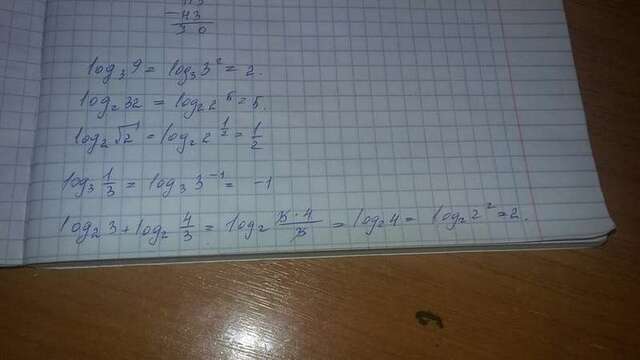 113
-43
30
log₃9 = log₃3² = 2.
log₂32 = log₂2⁵ = 5.
log₂√2 = log₂2^(1/2) = 1/2
log₃ 1/3 = log₃3⁻¹ = -1
log₂3 + log₂ 4/3 = log₂ 3·4/3 = log₂4 = log₂2² = 2.